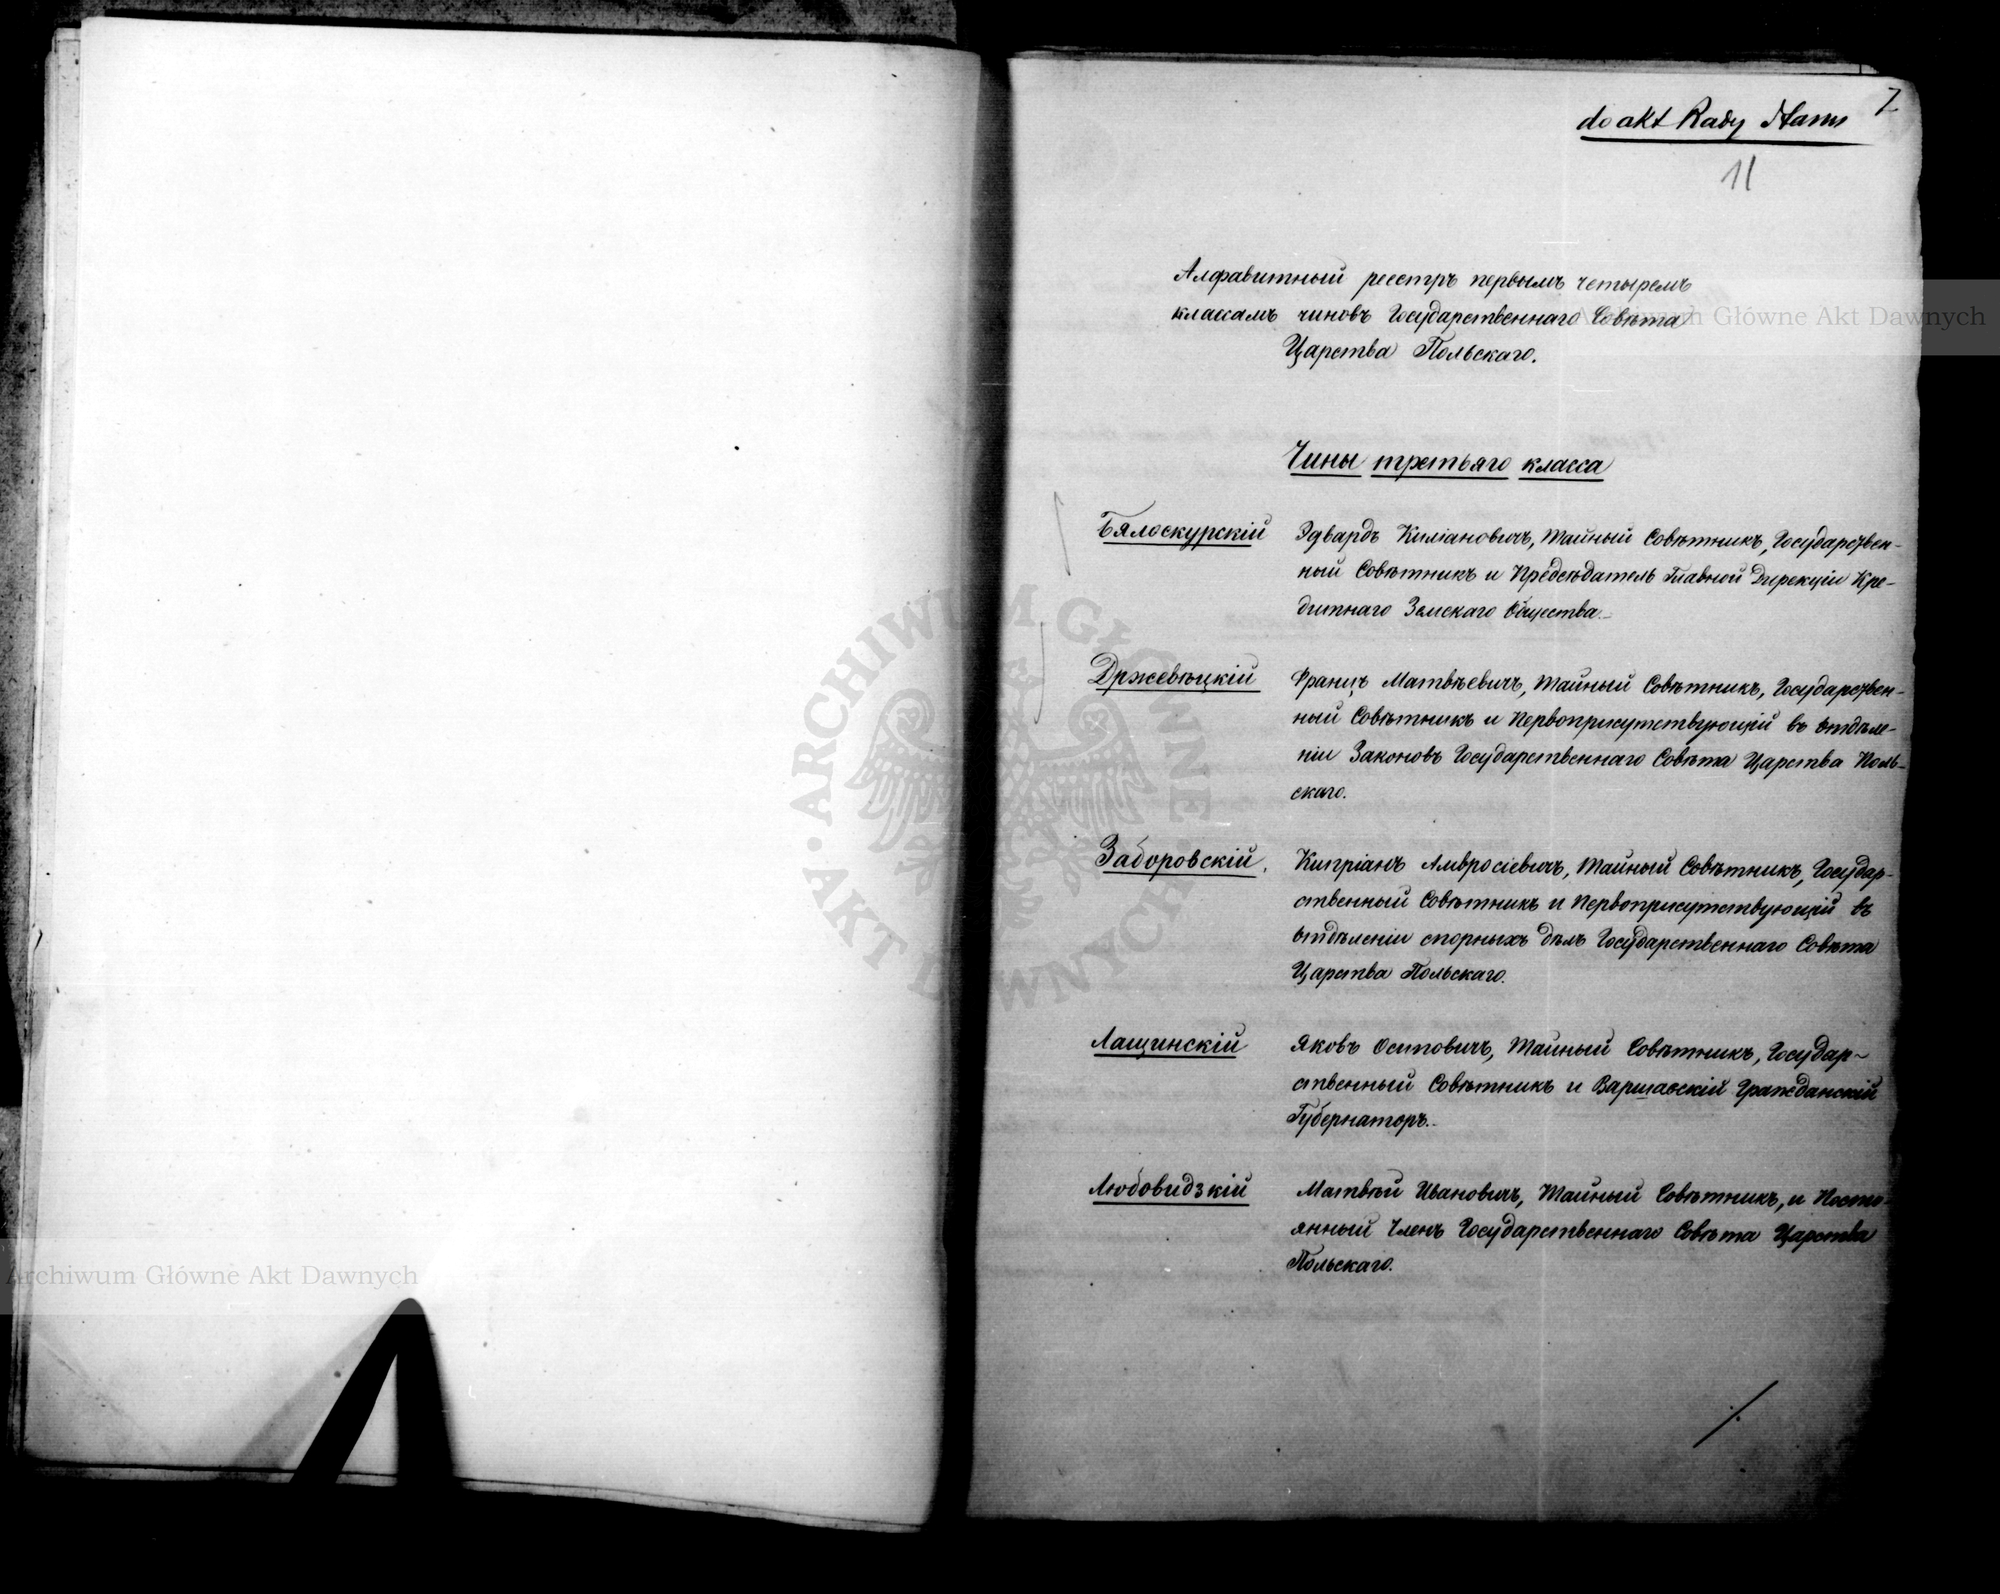 7
do akt Rady Stanu
11
Алфавитный реестръ первымъ четыремъ
классамъ чиновъ Государственнаго Совѣта
Царства Польскаго.
Чины третьяго класса
Бялоскурскій Эдвардъ Киліановичъ, Тайный Совѣтникъ, Государствен-
ный Совѣтникъ и Предсѣдатель Главной Дирекціи Кре-
дитнаго Земскаго Общества.
Држевѣцкій Францъ Матвѣевичъ, Тайный Совѣтникъ, Государствен-
ный Совѣтникъ и Первоприсутствующій въ Отдѣле-
ніи Законовъ Государственнаго Совѣта Царства Поль-
скаго.
Заборовскій, Кипріанъ Амвросіевичъ, Тайный Совѣтникъ, Государ-
ственный Совѣтникъ и Первоприсутствующій въ
Отдѣленіи спорныхъ дѣлъ Государственнаго Совѣта
Царства Польскаго.
Лащинскій Яковъ Осиповичъ, Тайный Совѣтникъ, Государ-
ственный Совѣтникъ и Варшавскій Гражданскій
Губернаторъ.
Любовидзкій Матвѣй Ивановичъ, Тайный Совѣтникъ, и Посто-
янный Членъ Государственнаго Совѣта Царства
Польскаго.
Archiwum Główne Akt Dawnych
ARCHIWUM GŁÓWNE AKT DAWNYCH
Archiwum Główne Akt Dawnych